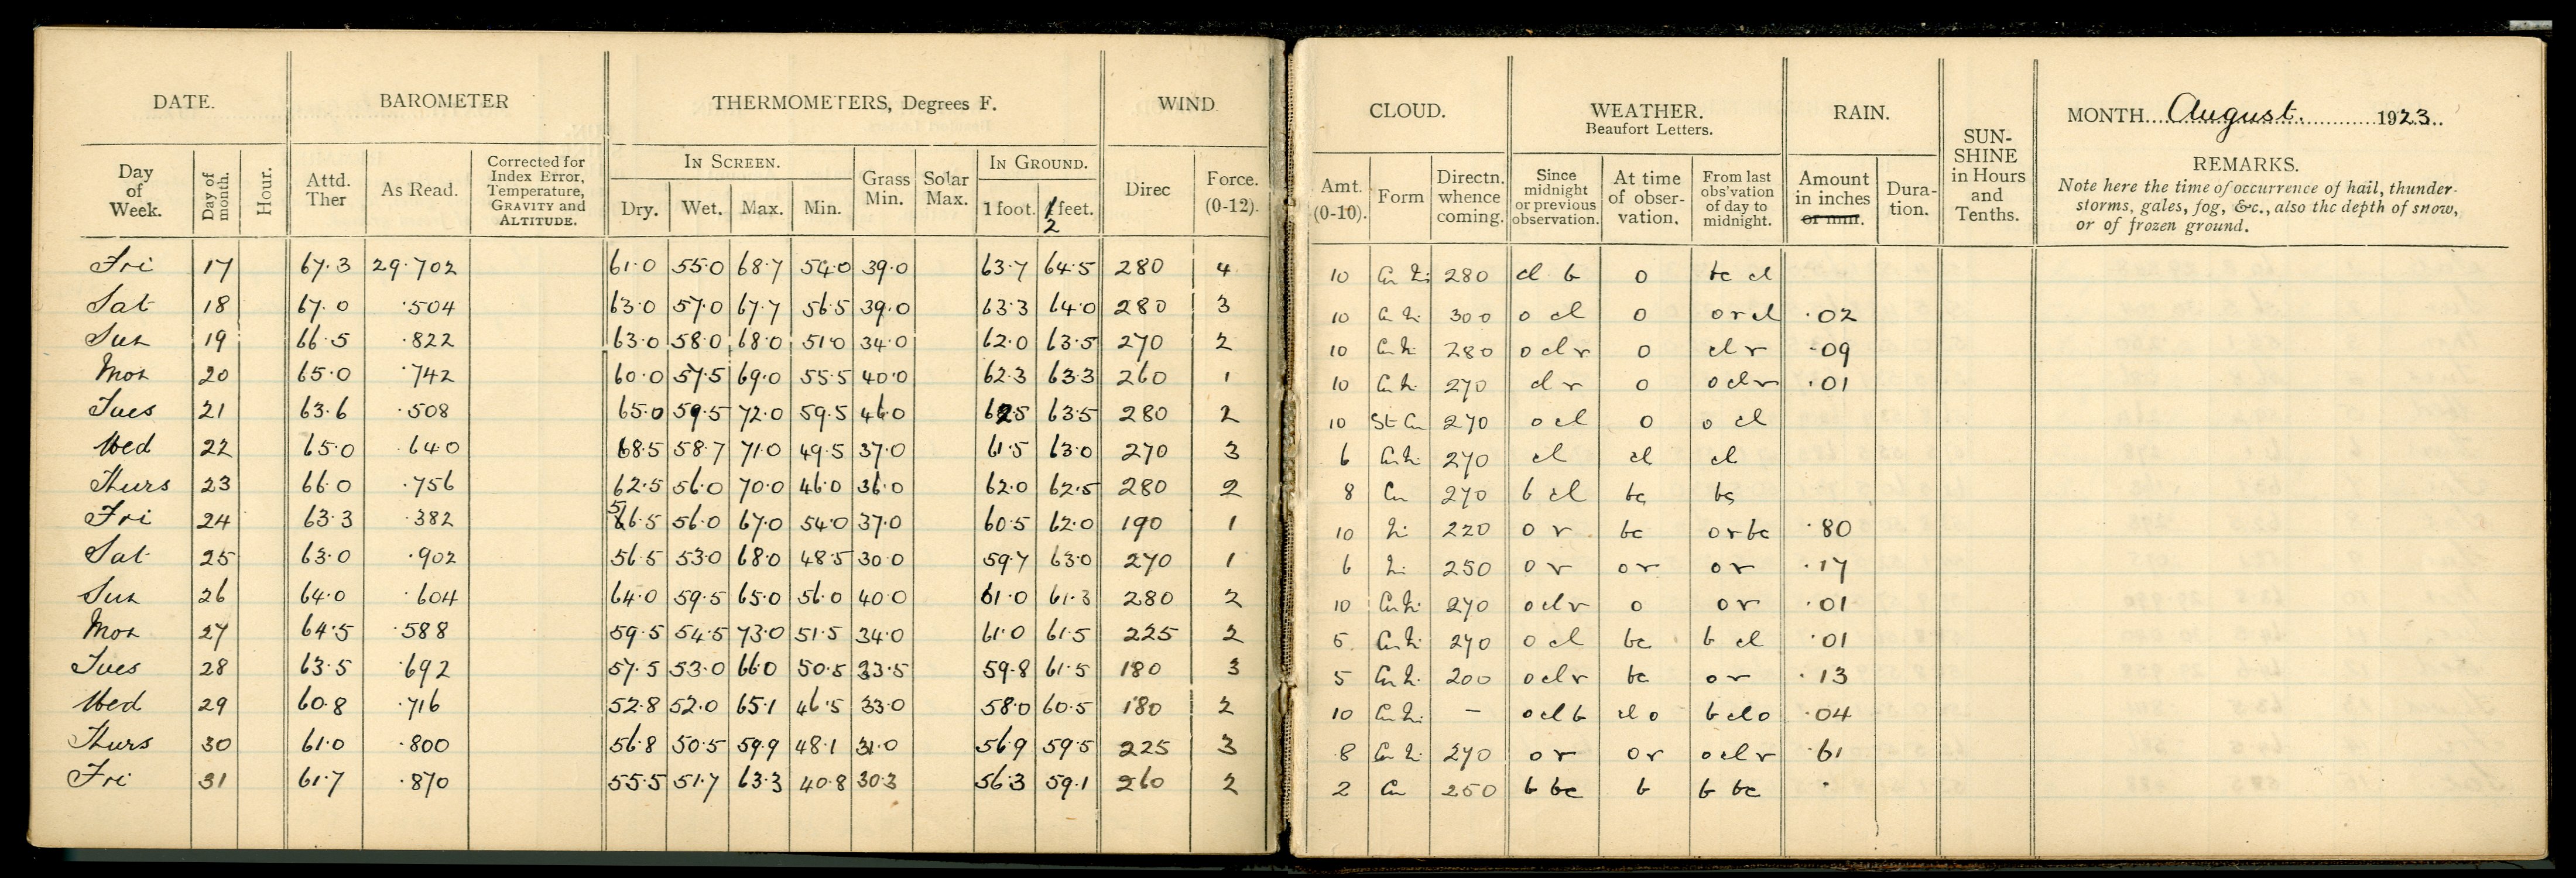 DATE. BAROMETER THERMOMETERS, Degrees F. WIND
Day of Week. Day of month. Hour. Attd. Ther As Read. Corrected for Index Error, Temperature, GRAVITY and ALTITUDE. IN SCREEN. Dry. Wet. Max. Min. Grass Min. Solar Max. IN GROUND. 1 foot. 2 feet. Direc Force. (0-12).
Fri 17 67.3 29.702 61.0 55.0 68.7 54.0 39.0 63.7 64.5 280 4
Sat 18 67.0 .504 63.0 57.0 67.7 56.5 39.0 63.3 64.0 280 3
Sun 19 66.5 .822 63.0 58.0 68.0 51.0 34.0 62.0 63.5 270 2
Mon 20 65.0 .742 60.0 57.5 69.0 55.5 40.0 62.3 63.3 260 1
Tues 21 63.6 .508 65.0 59.5 72.0 59.5 46.0 62.5 63.5 280 2
Wed 22 65.0 .640 68.5 58.7 71.0 49.5 37.0 61.5 63.0 270 3
Thurs 23 66.0 .756 62.5 56.0 70.0 46.0 36.0 62.0 62.5 280 2
Fri 24 63.3 .382 56.5 56.0 67.0 54.0 37.0 60.5 62.0 190 1
Sat 25 63.0 .902 56.5 53.0 68.0 48.5 30.0 59.7 63.0 270 1
Sun 26 64.0 .604 64.0 59.5 65.0 56.0 40.0 61.0 61.3 280 2
Mon 27 64.5 .588 59.5 54.5 73.0 51.5 34.0 61.0 61.5 225 2
Tues 28 63.5 .692 57.5 53.0 66.0 50.5 33.5 59.8 61.5 180 3
Wed 29 60.8 .716 52.8 52.0 65.1 46.5 33.0 58.0 60.5 180 2
Thurs 30 61.0 .800 56.8 50.5 59.9 48.1 31.0 56.9 59.5 225 3
Fri 31 61.7 .870 55.5 51.7 63.3 40.8 30.3 56.3 59.1 260 2
CLOUD. WEATHER. Beaufort Letters. RAIN. SUN-SHINE in Hours and Tenths. MONTH August. 1923
Amt. (0-10). Form Directn. whence coming. Since midnight or previous observation. At time of obser-vation. From last obs'vation of day to midnight. Amount in inches or mm. Dura-tion.
REMARKS.
Note here the time of occurrence of hail, thunder-
storms, gales, fog, &c., also the depth of snow,
or of frozen ground.
10 Cu Ni 280 cl b o bc cl
10 Cu Ni 300 o cl o o r cl .02
10 Cu Ni 280 o cl r o cl r .09
10 Cu Ni 270 cl r o o cl r .01
10 St Cu 270 o cl o o cl
6 Cu Ni 270 cl cl cl
8 Cu 270 b cl bc bc
10 Ni 220 o r bc o r bc .80
6 Ni 250 o r o r o r .17
10 Cu Ni 270 o cl r o o r .01
5 Cu Ni 270 o cl bc b cl .01
5 Cu Ni 200 o cl r bc o r .13
10 Cu Ni – o cl b cl o b cl o .04
8 Cu Ni 270 o r o r o cl r .61
2 Cu 250 b bc b b bc .